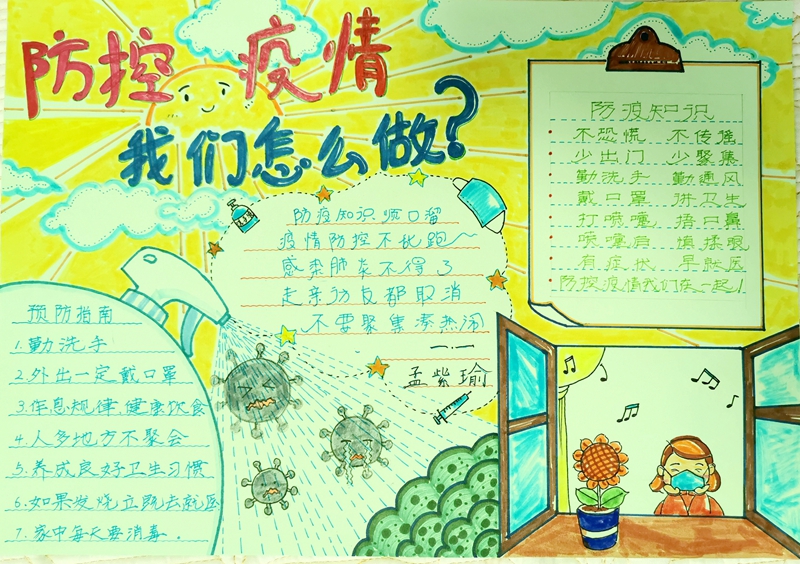 防控疫情
我们怎么做?
防疫知识顺口溜
疫情防控不比跑
感染肺炎不得了
走亲访友都取消
不要聚集凑热闹
一.一
孟紫瑜
防疫知识
不恐慌 不传谣
少出门 少聚集
勤洗手 勤通风
戴口罩 讲卫生
打喷嚏 捂口鼻
喷嚏后 慎揉眼
有症状 早就医
防控疫情我们在一起!
预防指南
1.勤洗手
2.外出一定戴口罩
3.作息规律.健康饮食
4.人多地方不聚会
5.养成良好卫生习惯
6.如果发烧立既去就医
7.家中每天要消毒.